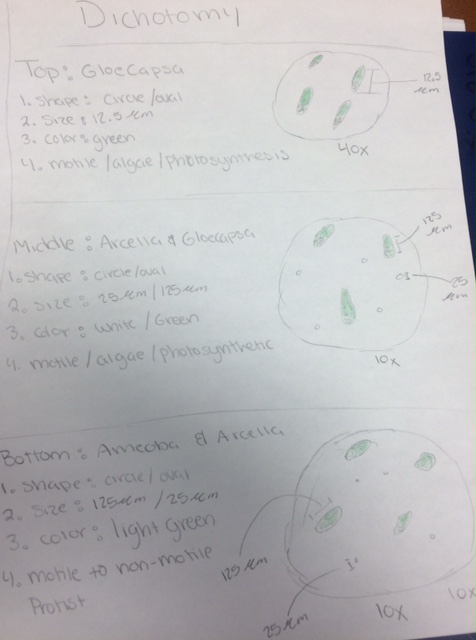 Dichotomy
Top: GloeCapsa
1. Shape: Circle/oval
2. Size: 12.5 µm
3. Color: green
4. motile/algae/photosynthesis
12.5
µm
40x
Middle: Arcella & Gloecapsa
1. Shape: circle/oval
2. Size: 25 µm/125 µm
3. Color: white/Green
4. motile/algae/photosynthetic
125
µm
25
µm
10x
Bottom: Ameoba & Arcella
1. Shape: circle/oval
2. Size: 125 µm/25 µm
3. Color: light green
4. motile to non-motile
Protist
125 µm
25 µm
10x
10x